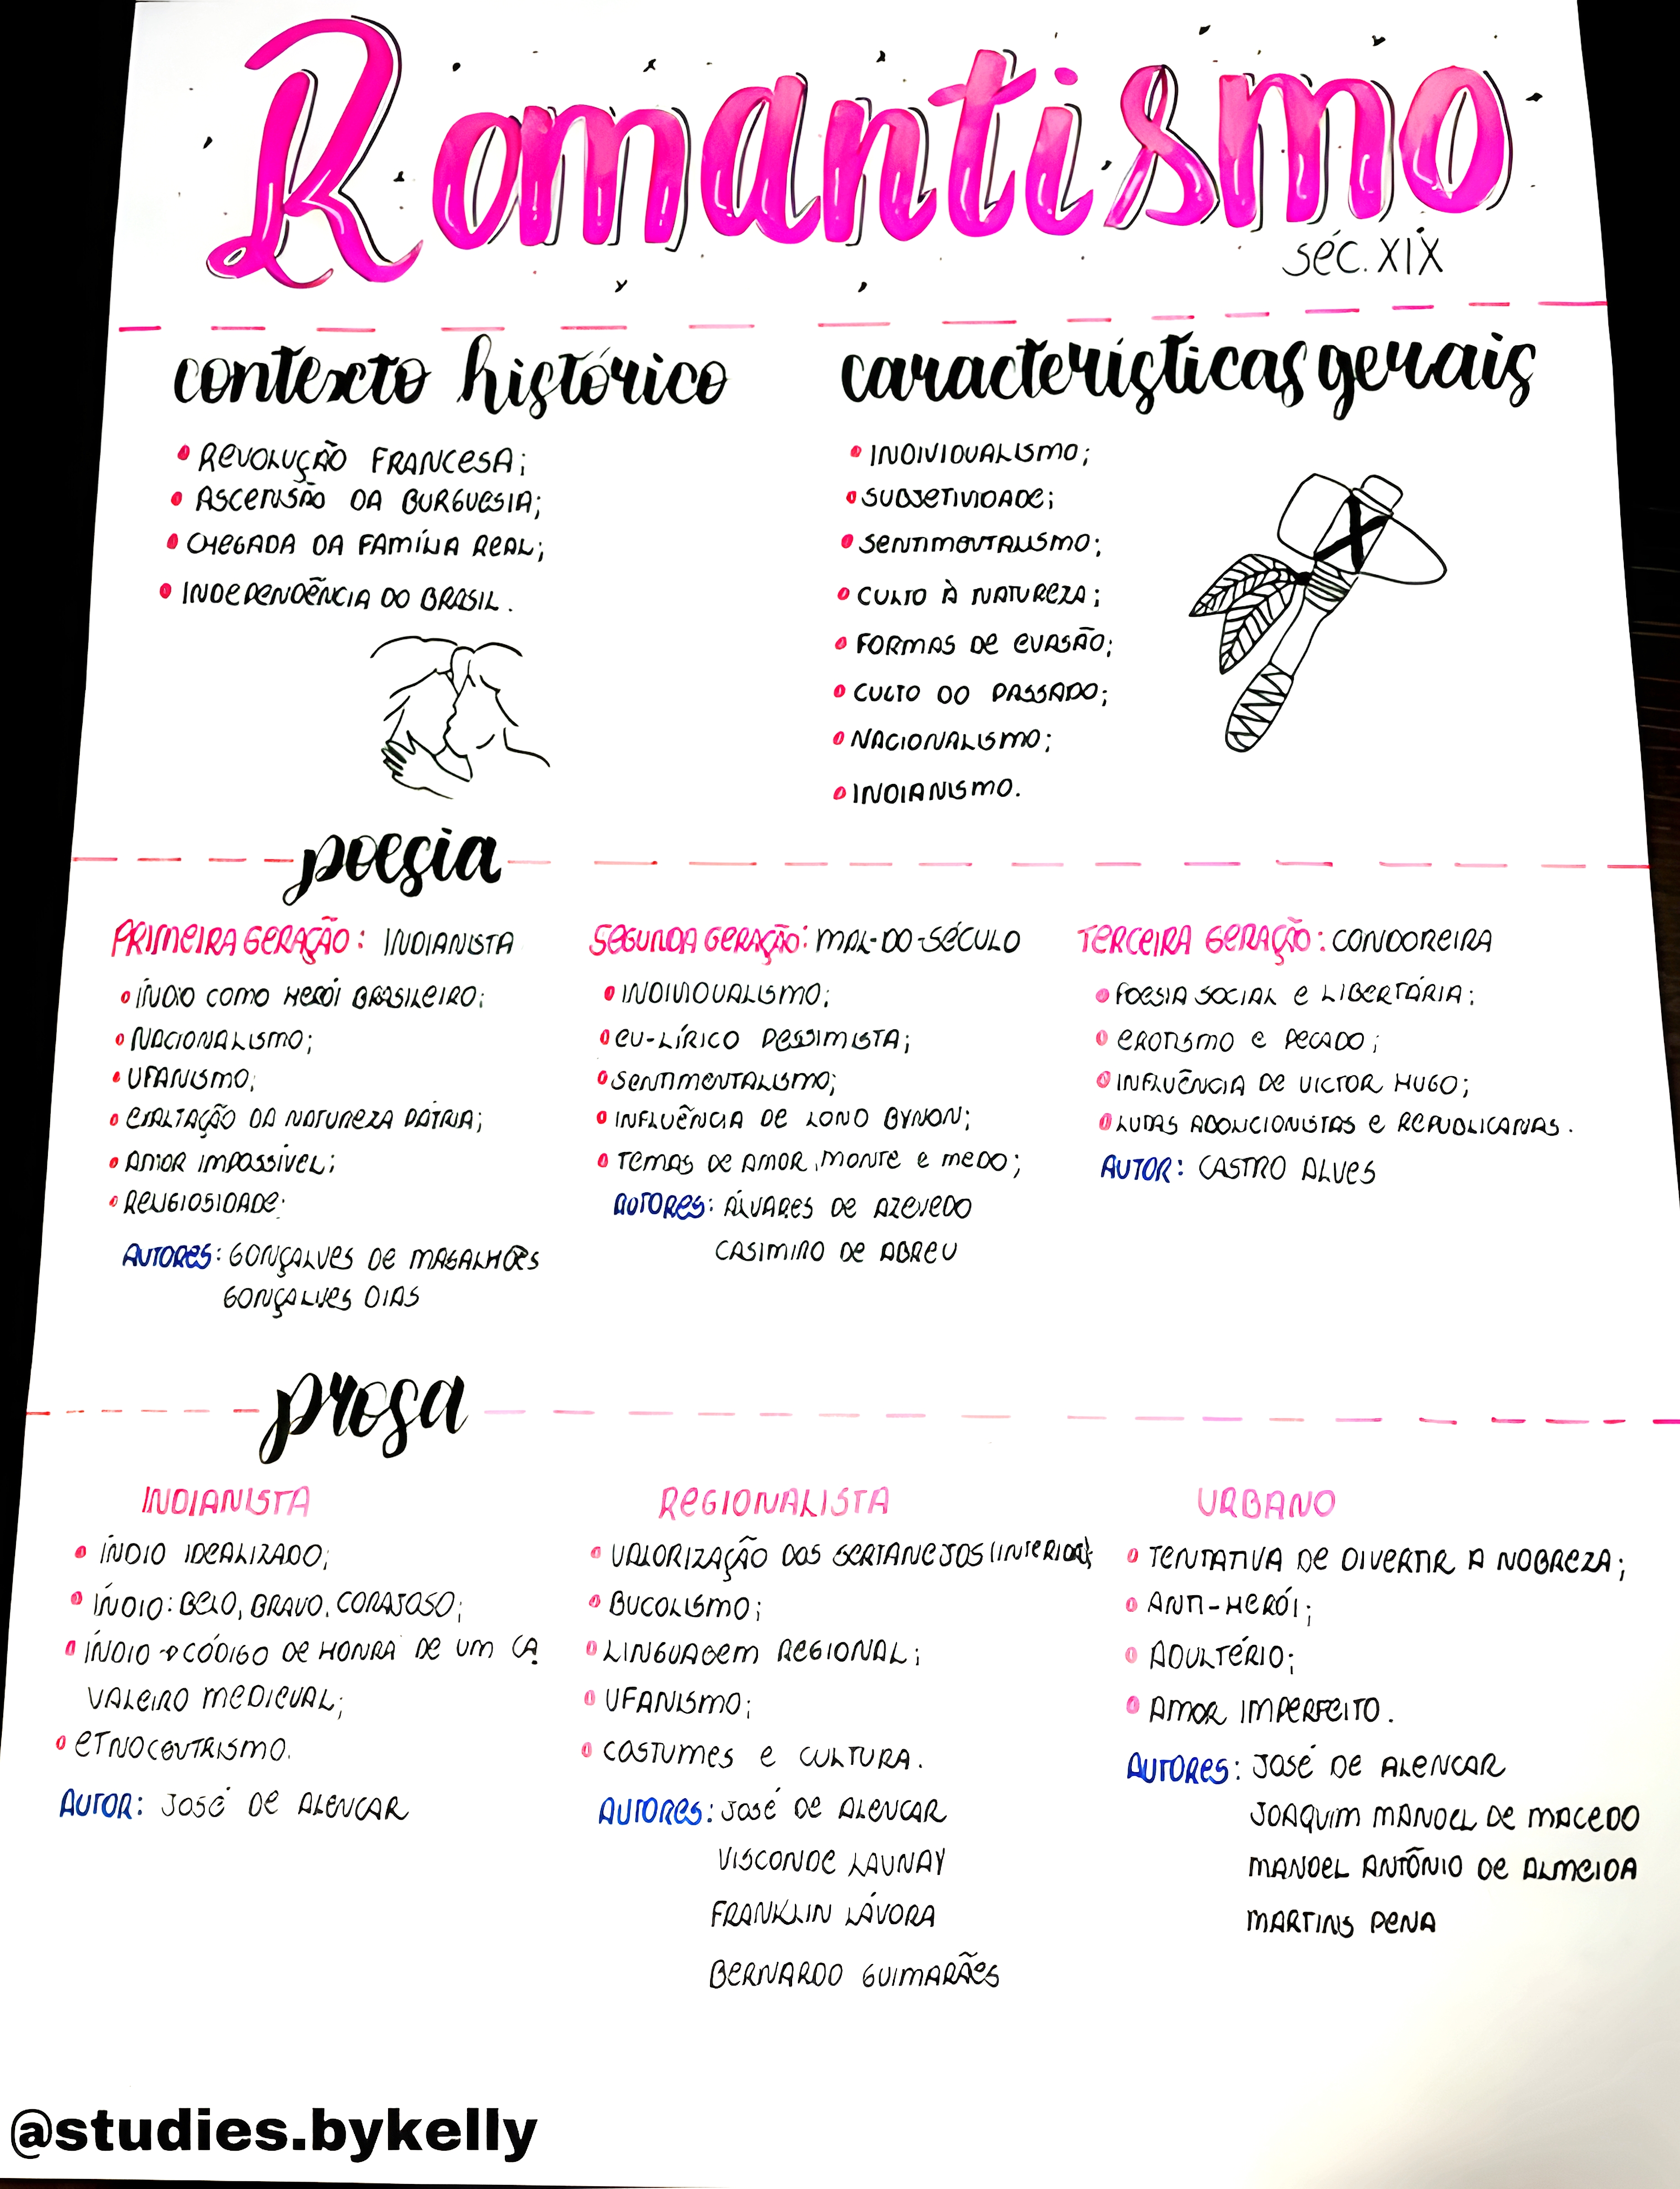 Romantismo
séc. XIX
contexto histórico
• REVOLUÇÃO FRANCESA;
• ASCENSÃO DA BURGUESIA;
• CHEGADA DA FAMÍLIA REAL;
• INDEPENDÊNCIA DO BRASIL.
características gerais
• INDIVIDUALISMO;
• SUBJETIVIDADE;
• SENTIMENTALISMO;
• CULTO À NATUREZA;
• FORMAS DE EVASÃO;
• CULTO DO PASSADO;
• NACIONALISMO;
• INDIANISMO.
poesia
PRIMEIRA GERAÇÃO: INDIANISTA
• ÍNDIO COMO HERÓI BRASILEIRO;
• NACIONALISMO;
• UFANISMO;
• EXALTAÇÃO DA NATUREZA PÁTRIA;
• AMOR IMPOSSÍVEL;
• RELIGIOSIDADE;
AUTORES: GONÇALVES DE MAGALHÕES
GONÇALVES DIAS
SEGUNDA GERAÇÃO: MAL-DO-SÉCULO
• INDIVIDUALISMO;
• EU-LÍRICO PESSIMISTA;
• SENTIMENTALISMO;
• INFLUÊNCIA DE LORD BYRON;
• TEMAS DE AMOR, MORTE E MEDO;
AUTORES: ÁLVARES DE AZEVEDO
CASIMIRO DE ABREU
TERCEIRA GERAÇÃO: CONDOREIRA
• POESIA SOCIAL E LIBERTÁRIA;
• EROTISMO E PECADO;
• INFLUÊNCIA DE VICTOR HUGO;
• LUTAS ABOLICIONISTAS E REPUBLICANAS.
AUTOR: CASTRO ALVES
prosa
INDIANISTA
• ÍNDIO IDEALIZADO;
• ÍNDIO: BELO, BRAVO, CORAJOSO;
• ÍNDIO → CÓDIGO DE HONRA DE UM CA
VALEIRO MEDIEVAL;
• ETNOCENTRISMO.
AUTOR: JOSÉ DE ALENCAR
REGIONALISTA
• VALORIZAÇÃO DOS SERTANEJOS (INTERIOR);
• BUCOLISMO;
• LINGUAGEM REGIONAL;
• UFANISMO;
• COSTUMES E CULTURA.
AUTORES: JOSÉ DE ALENCAR
VISCONDE LAUNAY
FRANKLIN LÁVORA
BERNARDO GUIMARÃES
URBANO
• TENTATIVA DE DIVERTIR A NOBREZA;
• ANTI-HERÓI;
• ADULTÉRIO;
• AMOR IMPERFEITO.
AUTORES: JOSÉ DE ALENCAR
JOAQUIM MANOEL DE MACEDO
MANOEL ANTÔNIO DE ALMEIDA
MARTINS PENA
@studies.bykelly